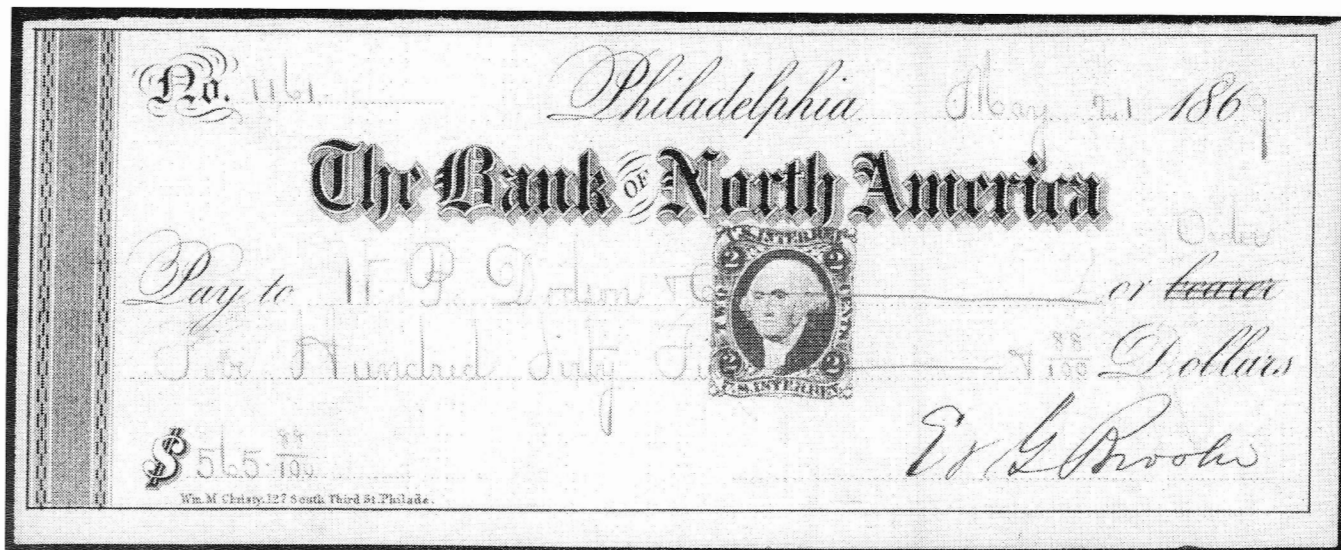 No. 1161 Philadelphia May 21 1869
The Bank OF North America
Order
Pay to W. P. Dodson & Co or bearer
Five Hundred Sixty Fi & 88/100 Dollars
U.S. INTER. REV.
2 2
TWO CENTS
2 2
U.S. INTER. REV.
$ 565 84/100
Ed G Brooke
Wm. M Christy. 127 South Third St. Philada.